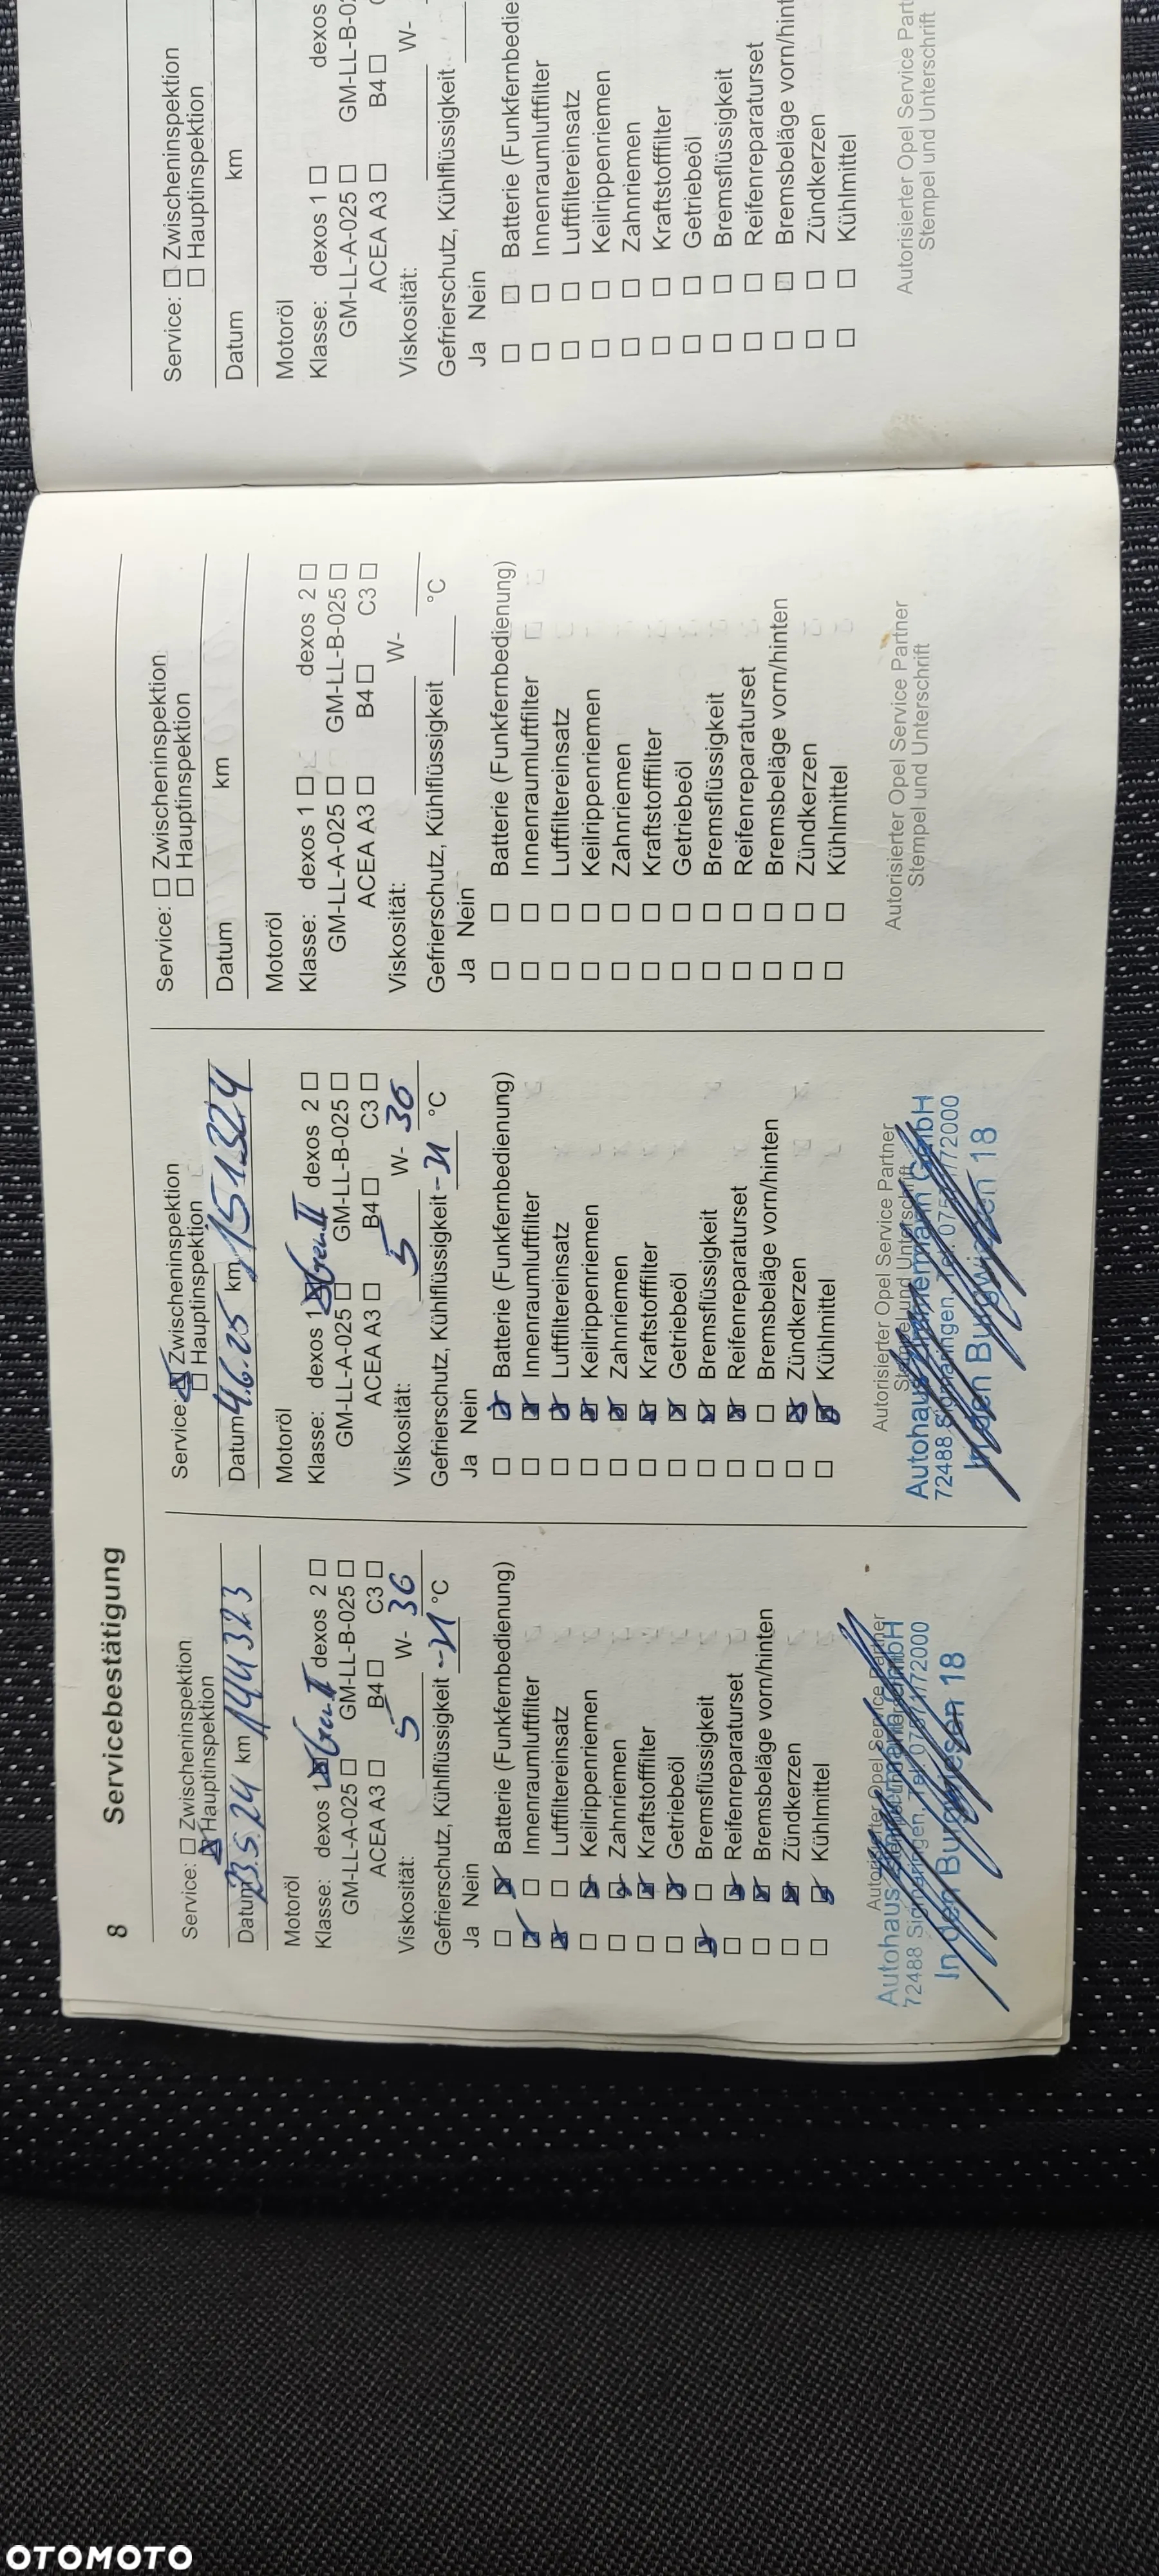 8 Servicebestätigung
Service: ☐ Zwischeninspektion
☒ Hauptinspektion
Datum 23.5.24 km 144323
Motoröl
Klasse: dexos 1 ☒ Gen II dexos 2 ☐
GM-LL-A-025 ☐ GM-LL-B-025 ☐
ACEA A3 ☐ B4 ☐ C3 ☐
Viskosität: 5 W- 30
Gefrierschutz, Kühlflüssigkeit -21 °C
Ja Nein
☐ ☒ Batterie (Funkfernbedienung)
☒ ☐ Innenraumluftfilter
☒ ☐ Luftfiltereinsatz
☐ ☒ Keilrippenriemen
☐ ☒ Zahnriemen
☐ ☒ Kraftstofffilter
☐ ☒ Getriebeöl
☒ ☐ Bremsflüssigkeit
☐ ☒ Reifenreparaturset
☐ ☒ Bremsbeläge vorn/hinten
☐ ☒ Zündkerzen
☐ ☒ Kühlmittel
Autorisierter Opel Service Partner
Autohaus GmbH
72488 Sigmaringen, Tel. 07571/72000
In den Burgwiesen 18
Service: ☒ Zwischeninspektion
☐ Hauptinspektion
Datum 4.6.25 km 151324
Motoröl
Klasse: dexos 1 ☒ Gen II dexos 2 ☐
GM-LL-A-025 ☐ GM-LL-B-025 ☐
ACEA A3 ☐ B4 ☐ C3 ☐
Viskosität: 5 W- 30
Gefrierschutz, Kühlflüssigkeit -21 °C
Ja Nein
☐ ☒ Batterie (Funkfernbedienung)
☐ ☒ Innenraumluftfilter
☐ ☒ Luftfiltereinsatz
☐ ☒ Keilrippenriemen
☐ ☒ Zahnriemen
☐ ☒ Kraftstofffilter
☐ ☒ Getriebeöl
☐ ☒ Bremsflüssigkeit
☐ ☒ Reifenreparaturset
☐ ☐ Bremsbeläge vorn/hinten
☐ ☒ Zündkerzen
☐ ☒ Kühlmittel
Autorisierter Opel Service Partner
Stempel und Unterschrift
Autohaus Zimmermann GmbH
72488 Sigmaringen, Tel. 07571/72000
In den Burgwiesen 18
Service: ☐ Zwischeninspektion
☐ Hauptinspektion
Datum km
Motoröl
Klasse: dexos 1 ☐ dexos 2 ☐
GM-LL-A-025 ☐ GM-LL-B-025 ☐
ACEA A3 ☐ B4 ☐ C3 ☐
Viskosität: W-
Gefrierschutz, Kühlflüssigkeit °C
Ja Nein
☐ ☐ Batterie (Funkfernbedienung)
☐ ☐ Innenraumluftfilter
☐ ☐ Luftfiltereinsatz
☐ ☐ Keilrippenriemen
☐ ☐ Zahnriemen
☐ ☐ Kraftstofffilter
☐ ☐ Getriebeöl
☐ ☐ Bremsflüssigkeit
☐ ☐ Reifenreparaturset
☐ ☐ Bremsbeläge vorn/hinten
☐ ☐ Zündkerzen
☐ ☐ Kühlmittel
Autorisierter Opel Service Partner
Stempel und Unterschrift
Service: ☐ Zwischeninspektion
☐ Hauptinspektion
Datum km
Motoröl
Klasse: dexos 1 ☐ dexos
GM-LL-A-025 ☐ GM-LL-B-02
ACEA A3 ☐ B4 ☐
Viskosität: W-
Gefrierschutz, Kühlflüssigkeit
Ja Nein
☐ ☐ Batterie (Funkfernbedie
☐ ☐ Innenraumluftfilter
☐ ☐ Luftfiltereinsatz
☐ ☐ Keilrippenriemen
☐ ☐ Zahnriemen
☐ ☐ Kraftstofffilter
☐ ☐ Getriebeöl
☐ ☐ Bremsflüssigkeit
☐ ☐ Reifenreparaturset
☐ ☐ Bremsbeläge vorn/hint
☐ ☐ Zündkerzen
☐ ☐ Kühlmittel
Autorisierter Opel Service Part
Stempel und Unterschrift
OTOMOTO